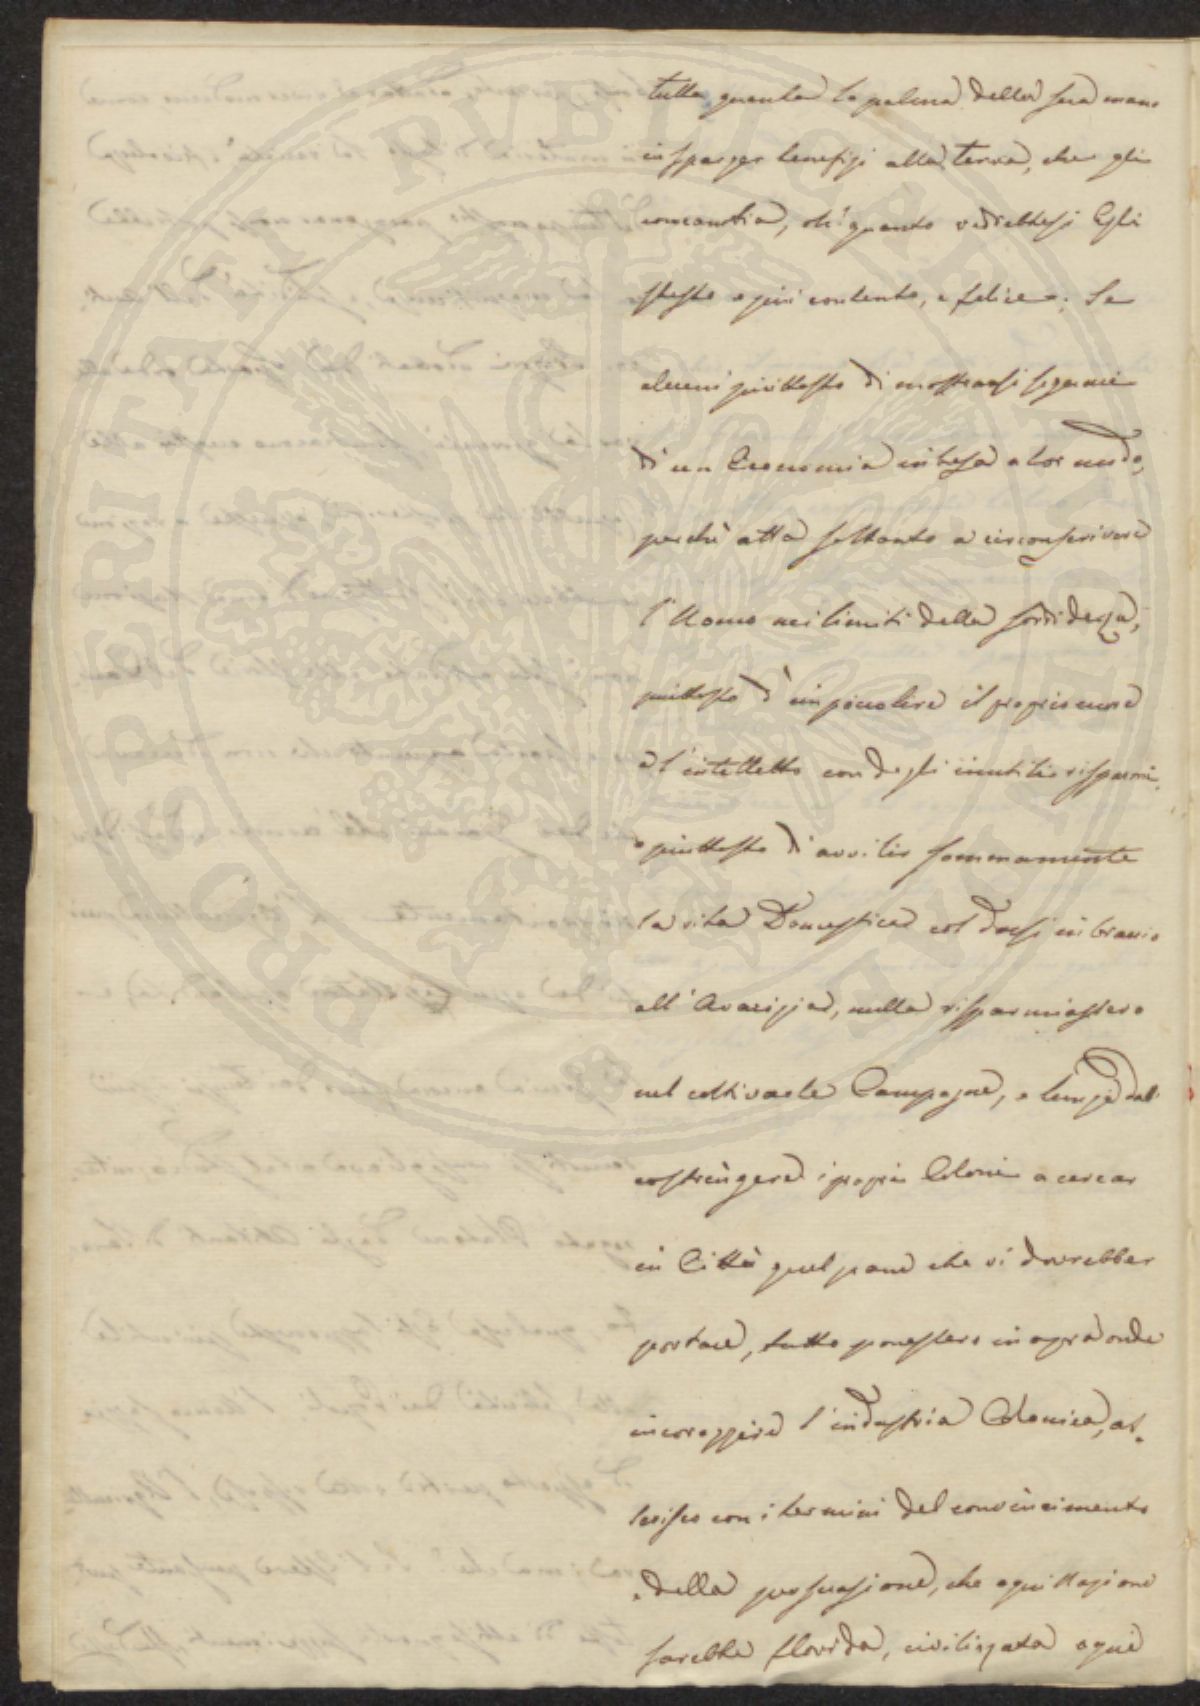 tutta quanta la palma della sua mano
in sparger benefizi alla terra, che gli
comanda, oh! quanto vedrebbesi Egli
stesso e più contento, e felice. Se
alcuni piuttosto di mostrarsi seguaci
di un Economia intesa a lor modo,
perchè atta soltanto a circonscrivere
l'Uomo nei limiti della sordidezza,
piuttosto d'impicolire il proprio cuore
e l'intelletto con degli inutili risparmi,
e piuttosto d'avvilir sommamente
la vita Domestica col darsi in braccio
all'Avarizia, nulla risparmiassero
nel coltivar le Campagne, e lungi dal
costringere i propri Coloni a cercar
in Città quel pane che vi dovrebber
portare, tutto ponessero in opra onde
incoraggire l'industria Colonica, as-
serisco con i termini del convincimento
e della persuasione, che ogni Nazione
sarebbe florida, civilizzata ogni
PROSPERITATI PVBLICAE AVGENDAE